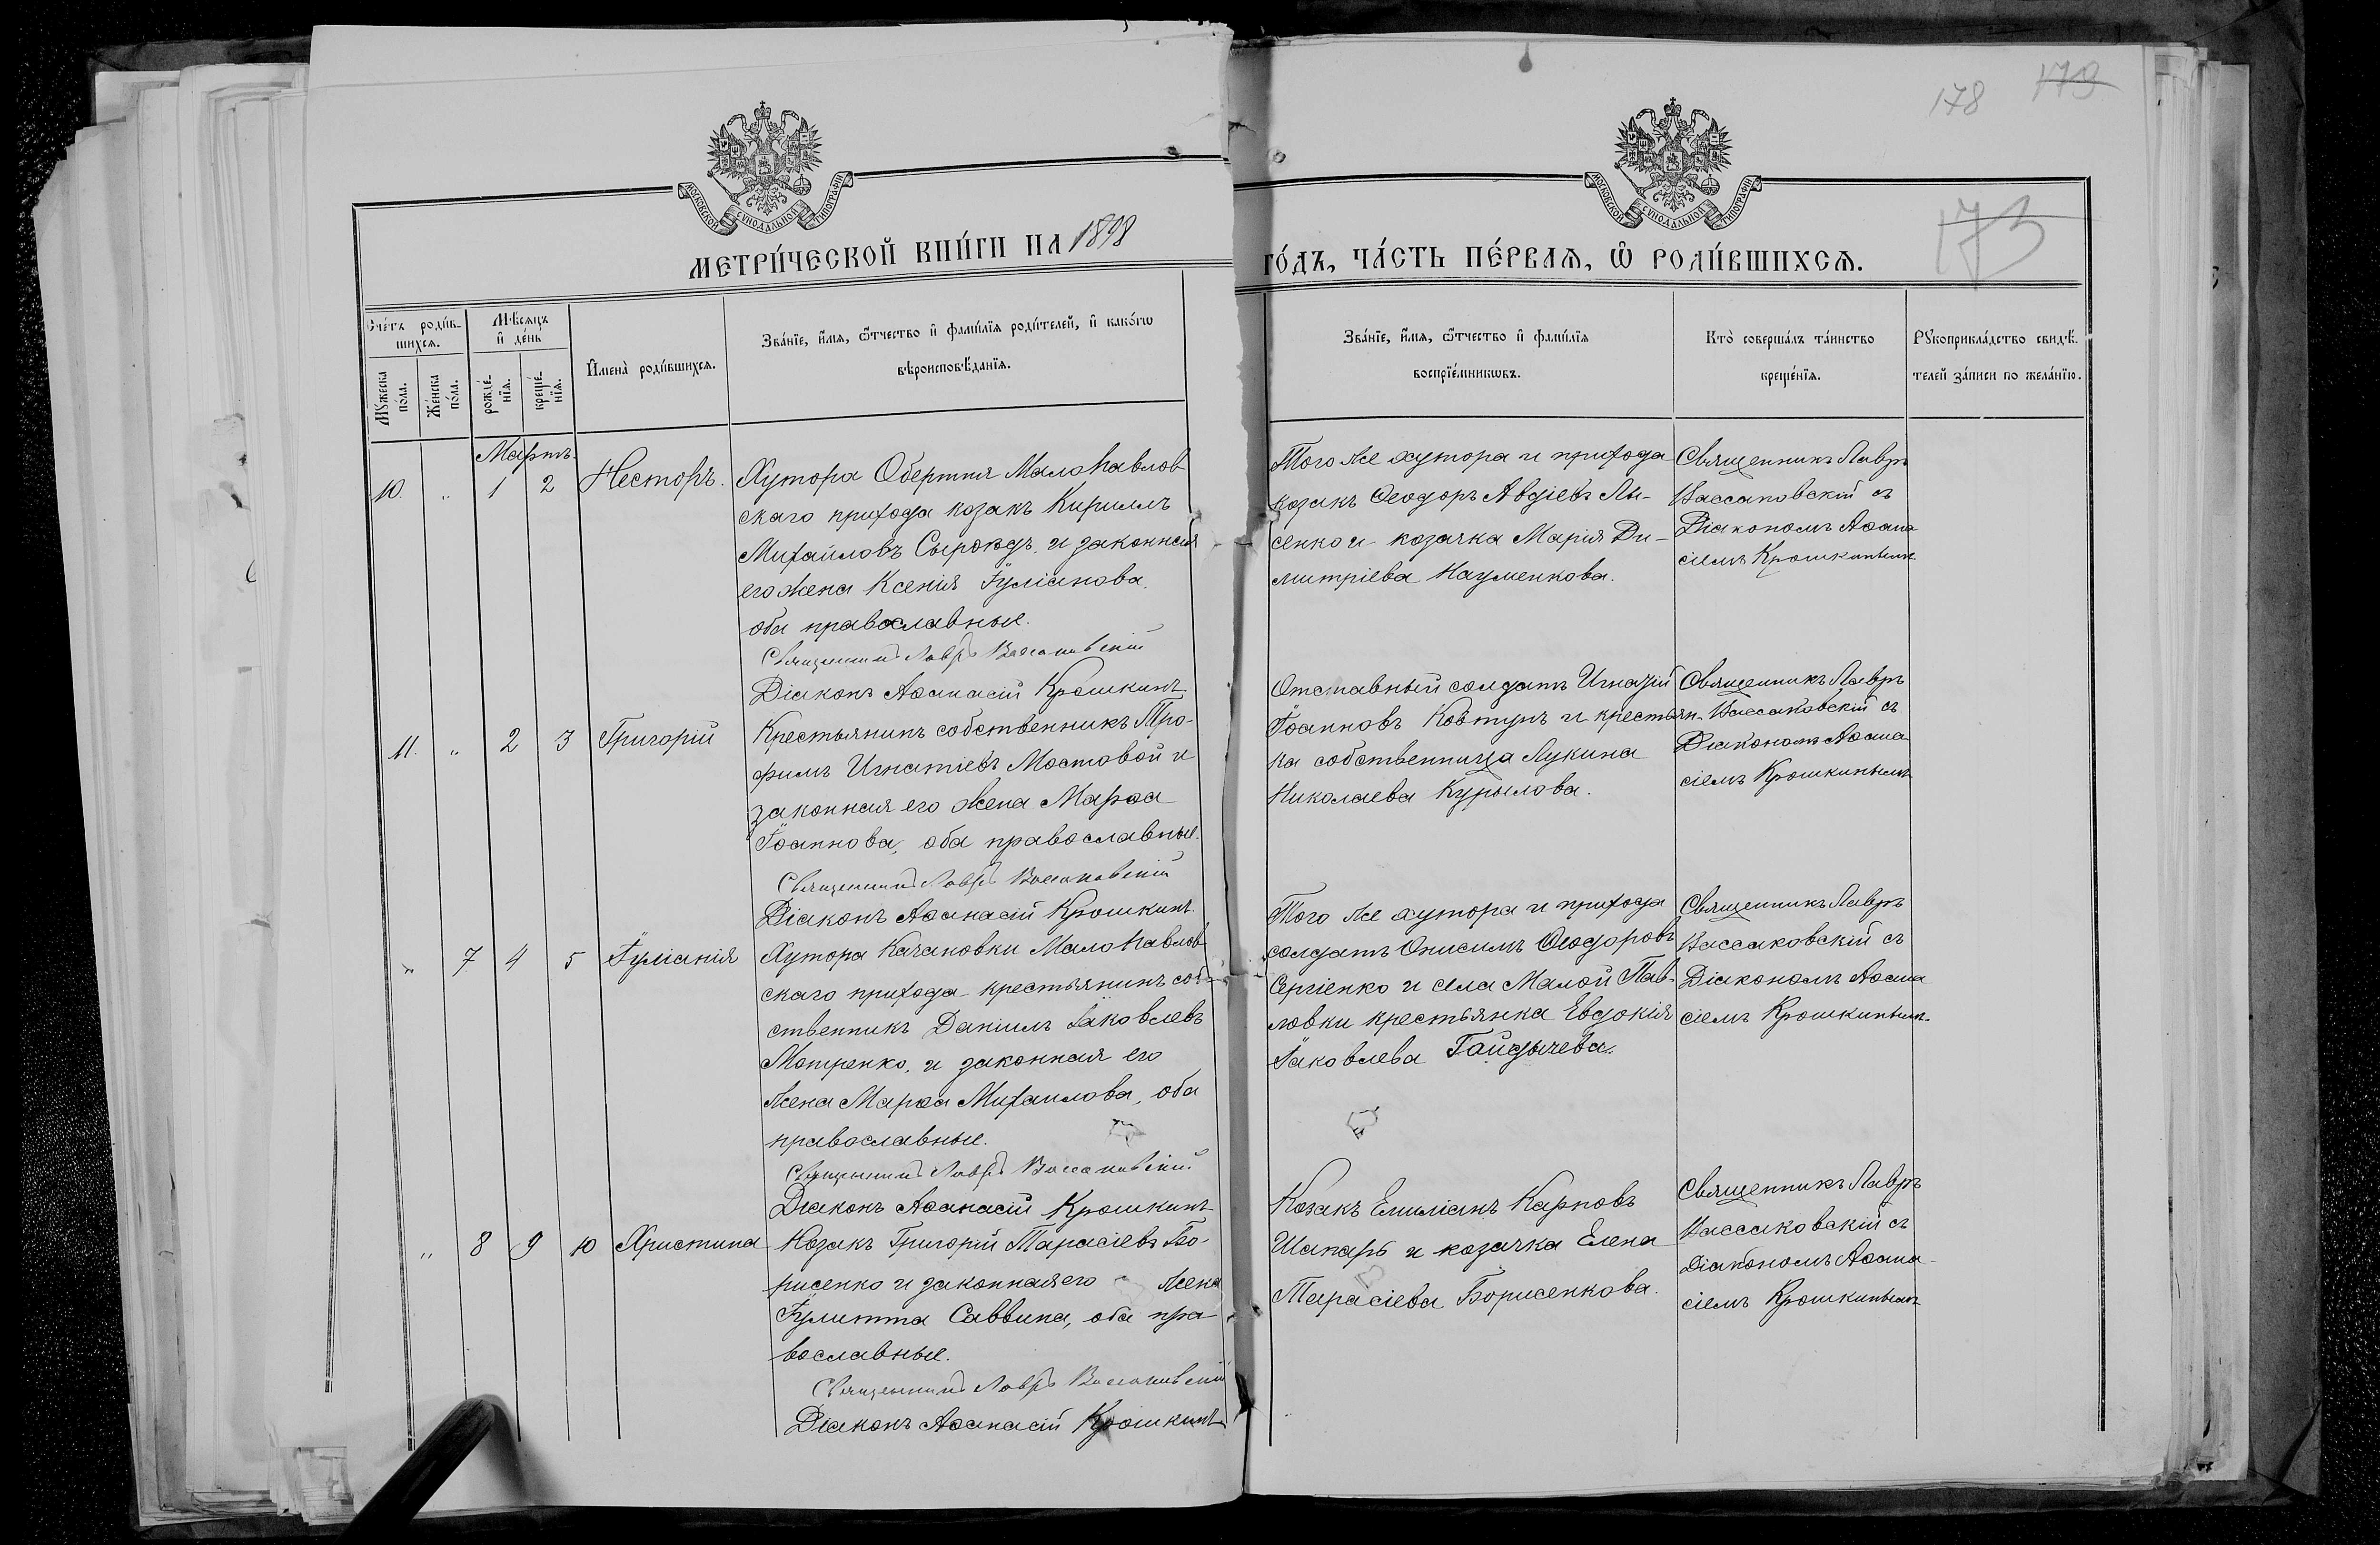 178 173
МОСКОВСКОЙ СѴНОДАЛЬНОЙ ТИПОГРАФІИ
МОСКОВСКОЙ СѴНОДАЛЬНОЙ ТИПОГРАФІИ
173
МЕТРИ́ЧЕСКОЙ КНИ́ГИ НА 1898
ГО́ДЪ, ЧА́СТЬ ПЕ́РВАѦ, Ѽ РОДИ́ВШИХСѦ.
Сче́тъ роди́в-
шихсѧ.
Мꙋ́жеска по́ла.
Же́нска по́ла.
Мѣ́сѧцъ
и҆ де́нь
рожде́-
нїѧ.
креще́-
нїѧ.
И҆мена̀ роди́вшихсѧ.
Зва́нїе, и҆́мѧ, ѻ҆́тчество и҆ фами́лїѧ роди́телей, и҆ како́гѡ
вѣроисповѣ́данїѧ.
Зва́нїе, и҆́мѧ, ѻ҆́тчество и҆ фами́лїѧ
воспрїе́мникѡвъ.
Кто̀ соверша́лъ та́инство
креще́нїѧ.
Рꙋкоприкла́дство свидѣ́-
телей за́писи по жела́нїю.
Мартъ.
10. „ 1 2 Несторъ.
Хутора Обертня Малопавлов
скаго прихода козакъ Кириллъ
Михаиловъ Сыроѣдъ и законная
его жена Ксенія Іуліанова
оба православные.
Священникъ Лавръ Вассаковскій
Діаконъ Аѳанасій Крошкинъ
Того же хутора и прихода
козакъ Ѳеодоръ Авдіевъ Лы-
сенко и козачка Марія Ди-
митріева Науменкова.
Священникъ Лавръ
Вассаковскій съ
Діакономъ Аѳана
сіемъ Крошкинымъ
11. „ 2 3 Григорій
Крестьянинъ собственникъ Тро-
фимъ Игнатіевъ Мостовой и
законная его жена Марѳа
Іоаннова, оба православные.
Священникъ Лавръ Вассаковскій
Діаконъ Аѳанасій Крошкинъ
Отставный солдатъ Игнатій
Іоанновъ Ковтунъ и крестьян-
ка собственница Лукина
Николаева Курылова.
Священникъ Лавръ
Вассаковскій съ
Діакономъ Аѳана
сіемъ Крошкинымъ
„ 7 4 5 Іуліанія
Хутора Качановки Малопавлов
скаго прихода крестьянинъ соб-
ственникъ Даніилъ Іаковлевъ
Мотренко, и законная его
жена Марѳа Михаилова, оба
православные.
Священникъ Лавръ Вассаковскій
Діаконъ Аѳанасій Крошкинъ
Того же хутора и прихода
солдатъ Онисимъ Ѳеодоровъ
Сергіенко и села Малой Пав-
ловки крестьянка Евдокія
Іаковлева Гайдычева.
Священникъ Лавръ
Вассаковскій съ
Діакономъ Аѳана
сіемъ Крошкинымъ.
„ 8 9 10 Христина
Козакъ Григорій Тарасіевъ Бо-
рисенко и законная его жена
Іулитта Саввина, оба пра-
вославные.
Священникъ Лавръ Вассаковскій
Діаконъ Аѳанасій Крошкинъ
Козакъ Емиліанъ Карповъ
Шапарь и козачка Елена
Тарасіева Борисенкова.
Священникъ Лавръ
Вассаковскій съ
Діакономъ Аѳана-
сіемъ Крошкинымъ